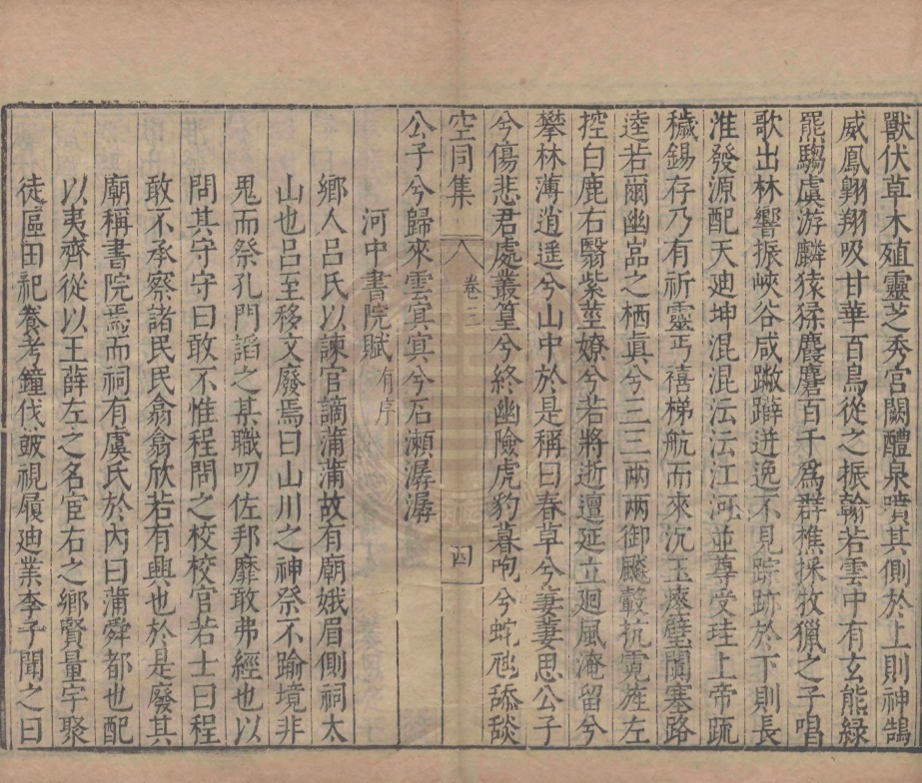 獸伏草木殖靈芝秀宫闕醴泉噴其側於上則神鵠
威鳳翺翔吸甘華百鳥從之振翰若雲中有玄熊緑
羆騶虞游麟猿猱麌麕百千爲群樵採牧獵之子唱
歌出林響振峽谷咸蹴躃迸逸不見踪跡於下則長
淮發源配天廸坤混混沄沄江河並尊受珪上帝
穢錫存乃有祈靈丐禧梯航而來沉玉瘞璧闐塞路
逵若爾幽嵓之栖眞兮三三兩兩御飈轂抗霓旌左
控白鹿右翳紫莖嫽兮若將逝邅延立廻風淹留兮
攀林薄逍遥兮山中於是稱曰春草兮萋萋思公子
兮傷悲君處叢篁兮終幽險虎豹暮咆兮蛇虺舔舕
空同集 卷三 四
公子兮歸來雲㝠㝠兮石瀬潺潺
河中書院賦 有序
鄉人吕氏以諫官謫蒲蒲故有廟娥眉側祠太
山也吕至移文廢焉曰山川之神祭不踰境非
鬼而祭孔門謟之某職叨佐邦靡敢弗經也以
問其守守曰敢不惟程問之校校官若士曰程
敢不承察諸民民翕翕欣若有興也於是廢其
廟稱書院焉而祠有虞氏於内曰蒲舜都也配
以夷齊從以王薛左之名宦右之鄉賢量宇聚
徒區田祀養考鐘伐皷視履廸業李子聞之曰